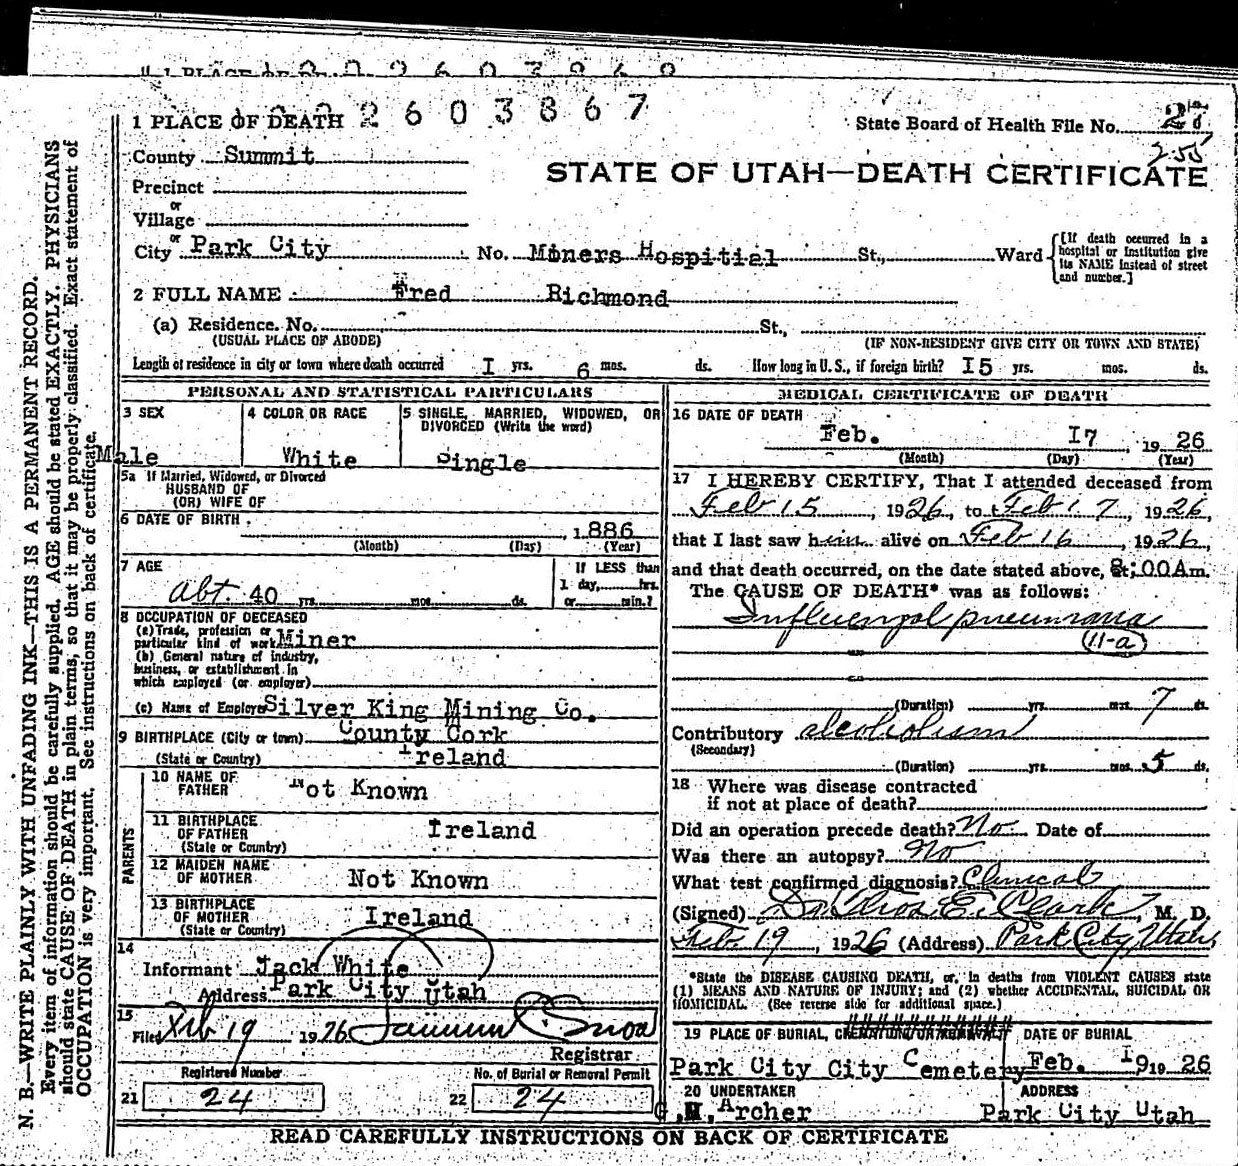 2603867
1 PLACE OF DEATH
State Board of Health File No.
255
County Summit
STATE OF UTAH—DEATH CERTIFICATE
Precinct
or
Village
or
City Park City No. Miners Hospitial St., Ward [If death occurred in a hospital or institution give its NAME instead of street and number.]
2 FULL NAME Fred Richmond
(a) Residence. No. St.,
(USUAL PLACE OF ABODE) (IF NON-RESIDENT GIVE CITY OR TOWN AND STATE)
Length of residence in city or town where death occurred I yrs. 6 mos. ds. How long in U. S., if foreign birth? I5 yrs. mos. ds.
PERSONAL AND STATISTICAL PARTICULARS
3 SEX
Male
4 COLOR OR RACE
White
5 SINGLE, MARRIED, WIDOWED, OR
DIVORCED (Write the word)
Single
5a If Married, Widowed, or Divorced
HUSBAND OF
(OR) WIFE OF
6 DATE OF BIRTH
, 1886
(Month) (Day) (Year)
7 AGE
abt. 40 yrs. mos. ds.
If LESS than
1 day, hrs.
or min.?
8 OCCUPATION OF DECEASED
(a) Trade, profession or
particular kind of work Miner
(b) General nature of industry,
business, or establishment in
which employed (or employer)
(c) Name of Employer Silver King Mining Co.
9 BIRTHPLACE (City or town) County Cork
(State or Country) Ireland
PARENTS
10 NAME OF
FATHER Not Known
11 BIRTHPLACE
OF FATHER Ireland
(State or Country)
12 MAIDEN NAME
OF MOTHER Not Known
13 BIRTHPLACE
OF MOTHER Ireland
(State or Country)
14
Informant Jack White
Address Park City Utah
15
Filed Feb 19 1926
Registrar
Registered Number
21 24
No. of Burial or Removal Permit
22 24
MEDICAL CERTIFICATE OF DEATH
16 DATE OF DEATH
Feb. I7 , 19 26
(Month) (Day) (Year)
17 I HEREBY CERTIFY, That I attended deceased from
Feb 15, 1926, to Feb 17, 1926,
that I last saw him alive on Feb 16, 1926,
and that death occurred, on the date stated above, at 8:00 Am.
The CAUSE OF DEATH* was as follows:
Influenzal pneumonia
(11-a)
(Duration) yrs. mos. 7 ds.
Contributory alcoholism
(Secondary)
(Duration) yrs. mos. 5 ds.
18 Where was disease contracted
if not at place of death?
Did an operation precede death? No Date of
Was there an autopsy? No
What test confirmed diagnosis? Clinical
(Signed) Dr Thos E. Clark, M. D.
Feb 19, 1926 (Address) Park City, Utah
*State the DISEASE CAUSING DEATH, or, in deaths from VIOLENT CAUSES state
(1) MEANS AND NATURE OF INJURY; and (2) whether ACCIDENTAL, SUICIDAL OR
HOMICIDAL. (See reverse side for additional space.)
19 PLACE OF BURIAL, DATE OF BURIAL
Park City City Cemetery Feb. I9 19 26
20 UNDERTAKER ADDRESS
G.M. Archer Park City Utah
READ CAREFULLY INSTRUCTIONS ON BACK OF CERTIFICATE
N. B.—WRITE PLAINLY WITH UNFADING INK—THIS IS A PERMANENT RECORD.
Every item of information should be carefully supplied. AGE should be stated EXACTLY. PHYSICIANS
should state CAUSE OF DEATH in plain terms, so that it may be properly classified. Exact statement of
OCCUPATION is very important. See instructions on back of certificate.